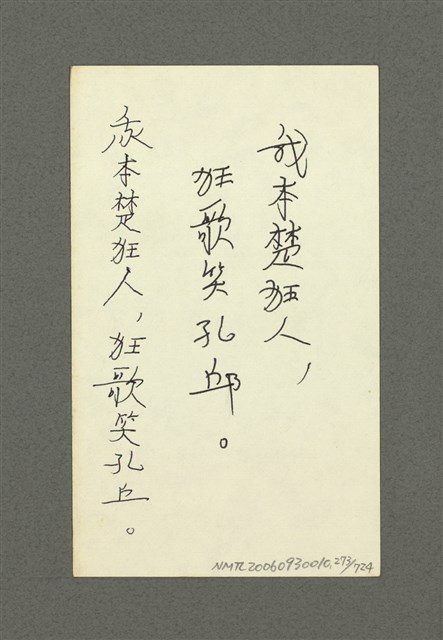 我本楚狂人，
狂歌笑孔邱。
我本楚狂人，狂歌笑孔丘。
NMTL20060930010.273/724